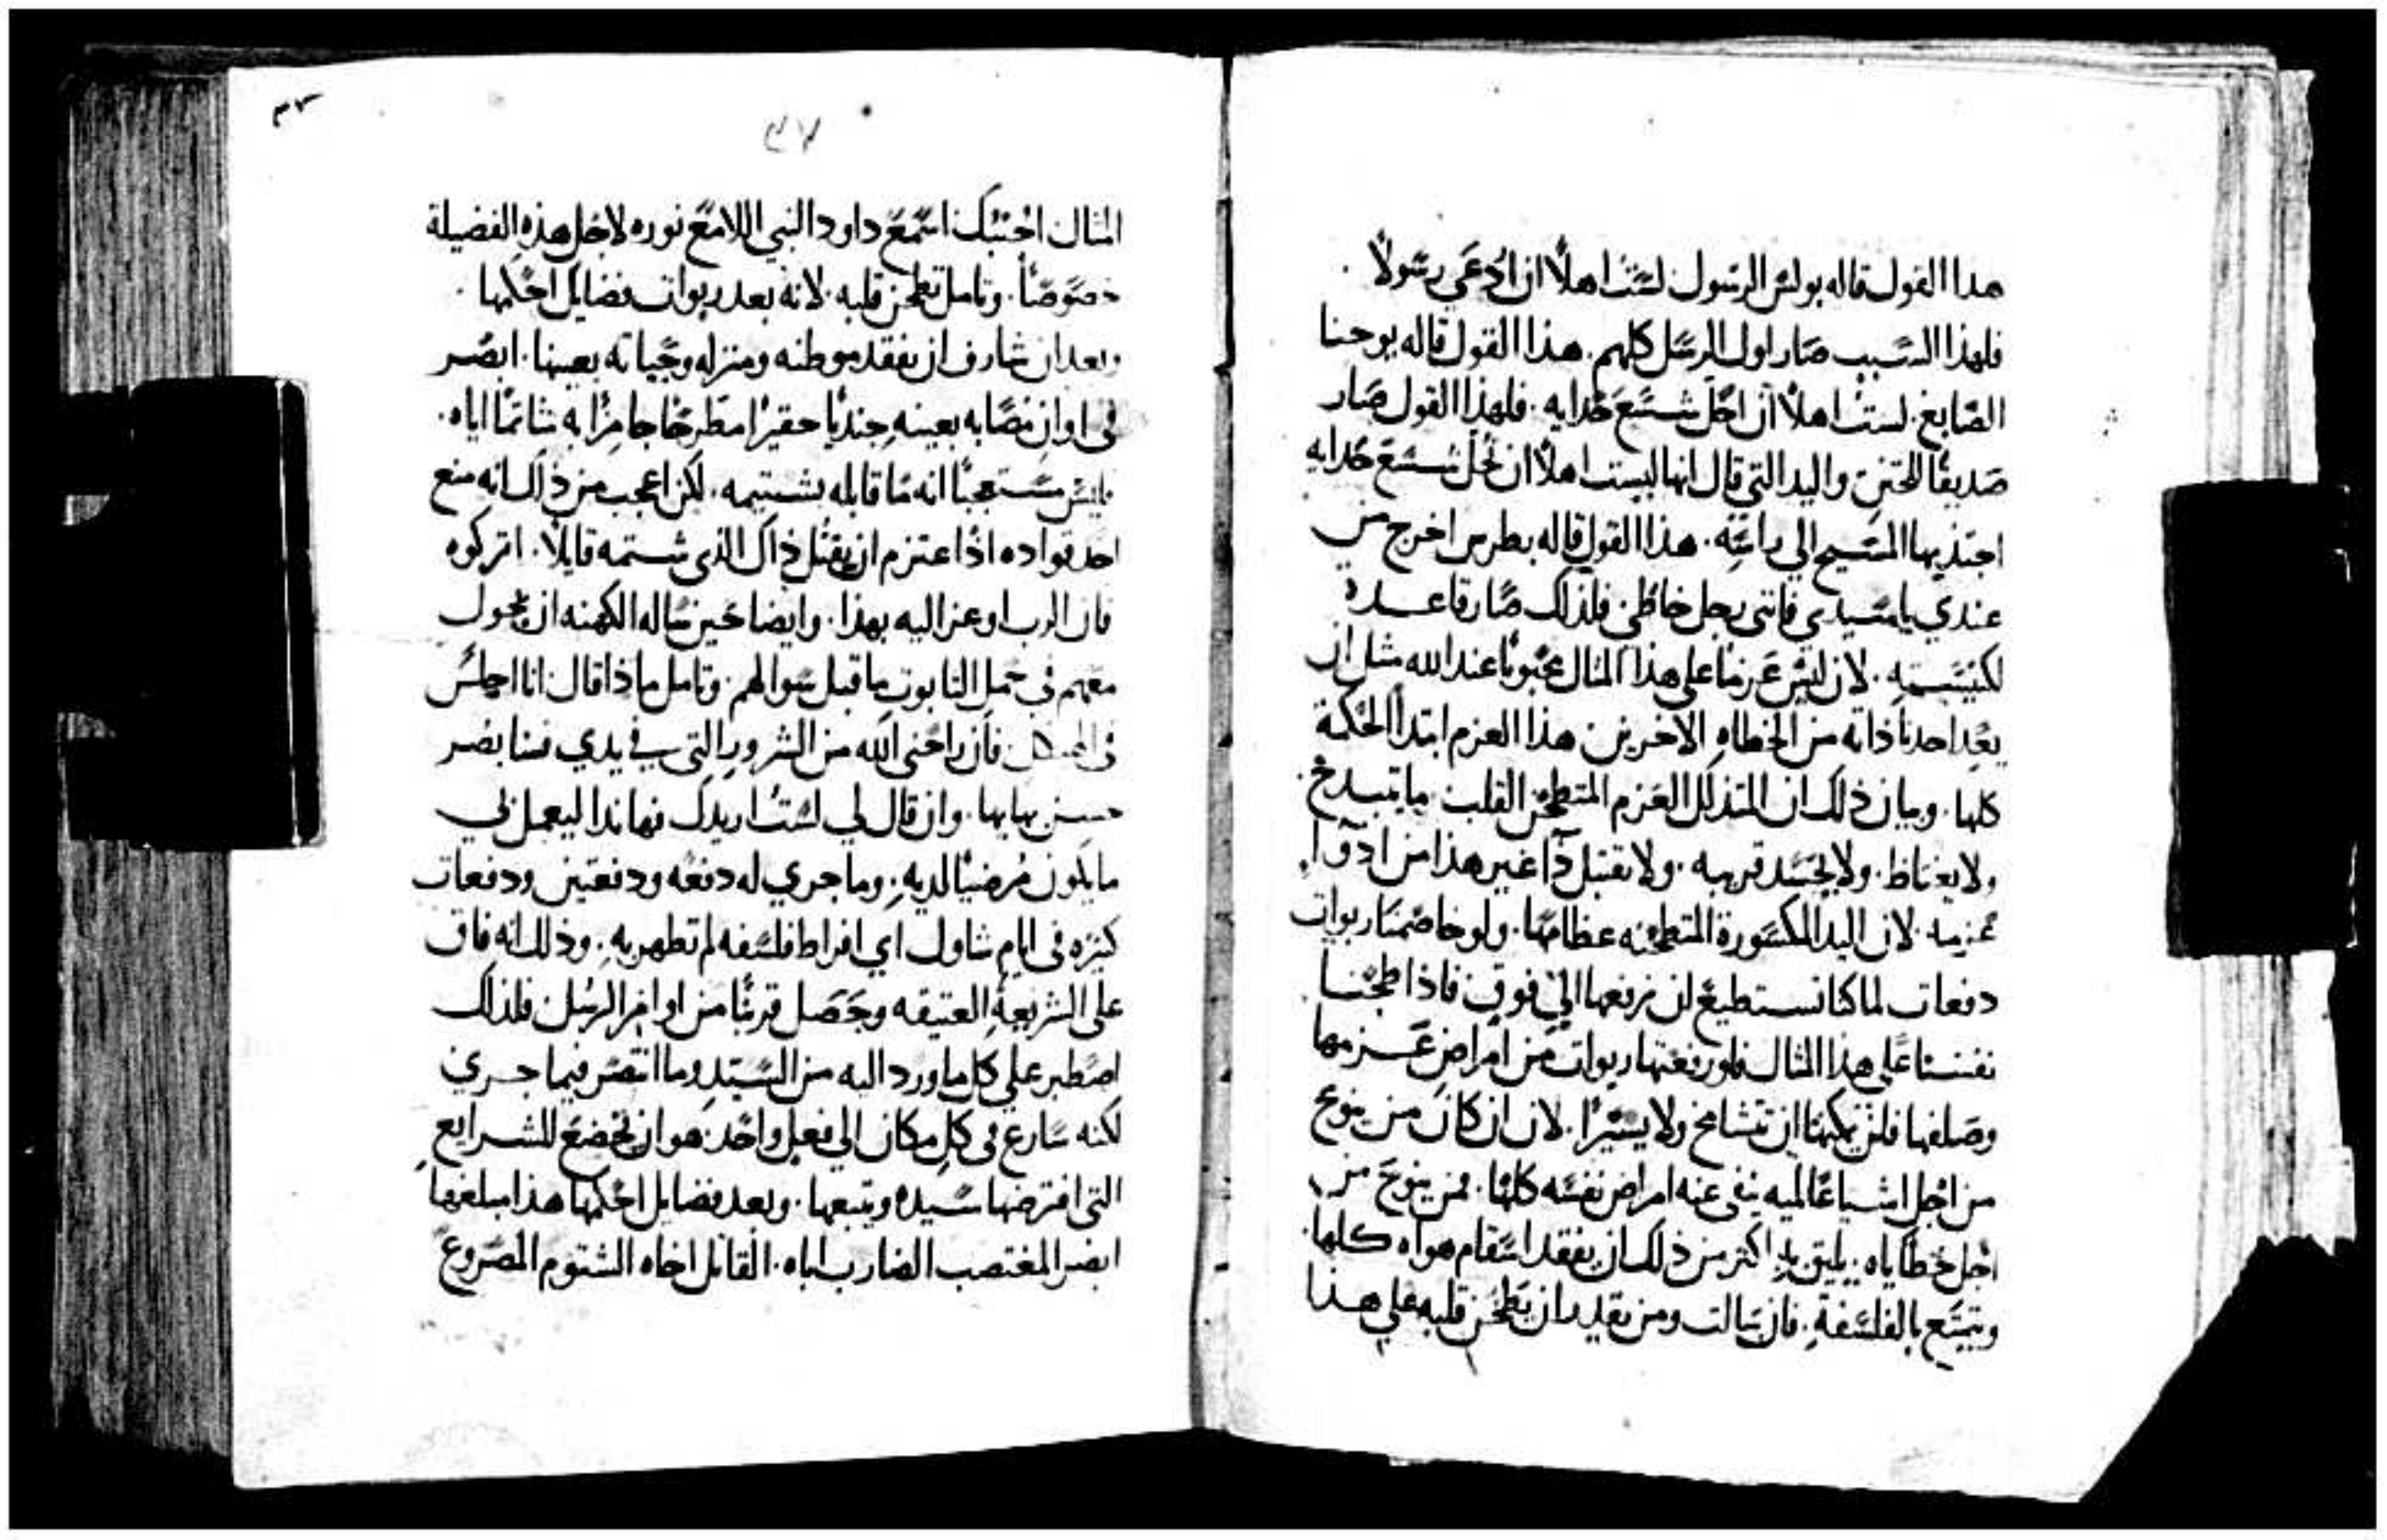 هذا القول قاله بولس الرسول لست اهلاً ان اُدعَي رسولاً .
فلهذا السبب صار اول الرسل كلهم . هذا القول قاله يوحنا
الصابغ . لست اهلاً ان احل شسع حذايه . فلهذا القول صار
صديقًا للختن واليد التي قال انها ليست اهلاً ان تحل شسع حذايه
اجتذبها المسيح الي راسه . هذا القول قاله بطرس اخرج من
عندي يا سيدي فانني رجل خاطي . فلذلك صار قاعده
لكنيسته . لان ليس عزمًا على هذا المثال محبوبًا عند الله مثل ان
يعد احدنا ذاته من الخطاه الاخرين هذا العزم ابتدا الحكمة
كلها . وبيان ذلك ان المتذلل العزم المتطحن القلب ما يتبذخ
ولا يغتاظ . ولا يحسد قريبه . ولا يقتبل دآ غير هذا من ادوآ
عزميه . لان اليد المكسورة المتطحنه عظامها . ولو خاصمنا ربوات
دفعات لما كنا نستطيع ان نرفعها الي فوق فاذا طحنا
نفسنا على هذا المثال فلو رفعتها ربوات من امراض عزمها
وصلفها فلن يمكنها ان تتشامخ ولا يسيرًا . لان ان كان من ينوح
من اجل اشيا عالميه ينفي عنه امراض نفسه كلها . فمن ينوح من
اجل خطاياه يليق به اكثر من ذلك ان يفقد اسقام هواه كلها .
ويتمتع بالفلسفة . فان سالت ومن يقدر ان يطحن قلبه علي هذا
٣٧
٣٧
المثال اجبتك استمع داود النبي اللامع نوره لاجل هذه الفضيلة
خصوصًا . وتامل تطحن قلبه . لانه بعد ربوات فضايل احكمها .
وبعد ان شارف ان يفقد موطنه ومنزله وحياته بعينها . ابصر
في اوان مصابه بعينه جنديًا حقيرًا مطرحًا جامزًا به شاتمًا اياه .
فليس مستعجبًا انه ما قابله بشتيمه . لكن اعجب من ذلك انه منع
احد قواده اذا اعتزم ان يقتل ذاك الذي شتمه قايلاً . اتركوه
فان الرب اوعز اليه بهذا . وايضا حين ساله الكهنه ان يجول
معهم في حمل التابوت ما قبل سوالهم . وتامل ماذا قال انا اجلس
في فان راحني الله من الشرور التي في يدي فسابصر
حسن بهايها . وان قال لي لست اريدك فهانذا ليعمل بي
ما يكون مُرضيًا لديه . وما جري له دفعه ودفعتين ودفعات
كثيره في ايام شاول اي افراط فلسفه لم تظهر به . وذلك انه فاق
على الشريعة العتيقه وحصل قريبًا من اوامر الرسل فلذلك
اصطبر علي كل ما ورد اليه من السيد وما فيما جري
لكنه سارع في كل مكان الي فعل واحد هو ان يخضع للشرايع
التي افترضها سيده ويتبعها . وبعد فضايل احكمها هذا مبلغها
ابصر المغتصب الضارب اباه . القاتل اخاه الشتوم المصروع